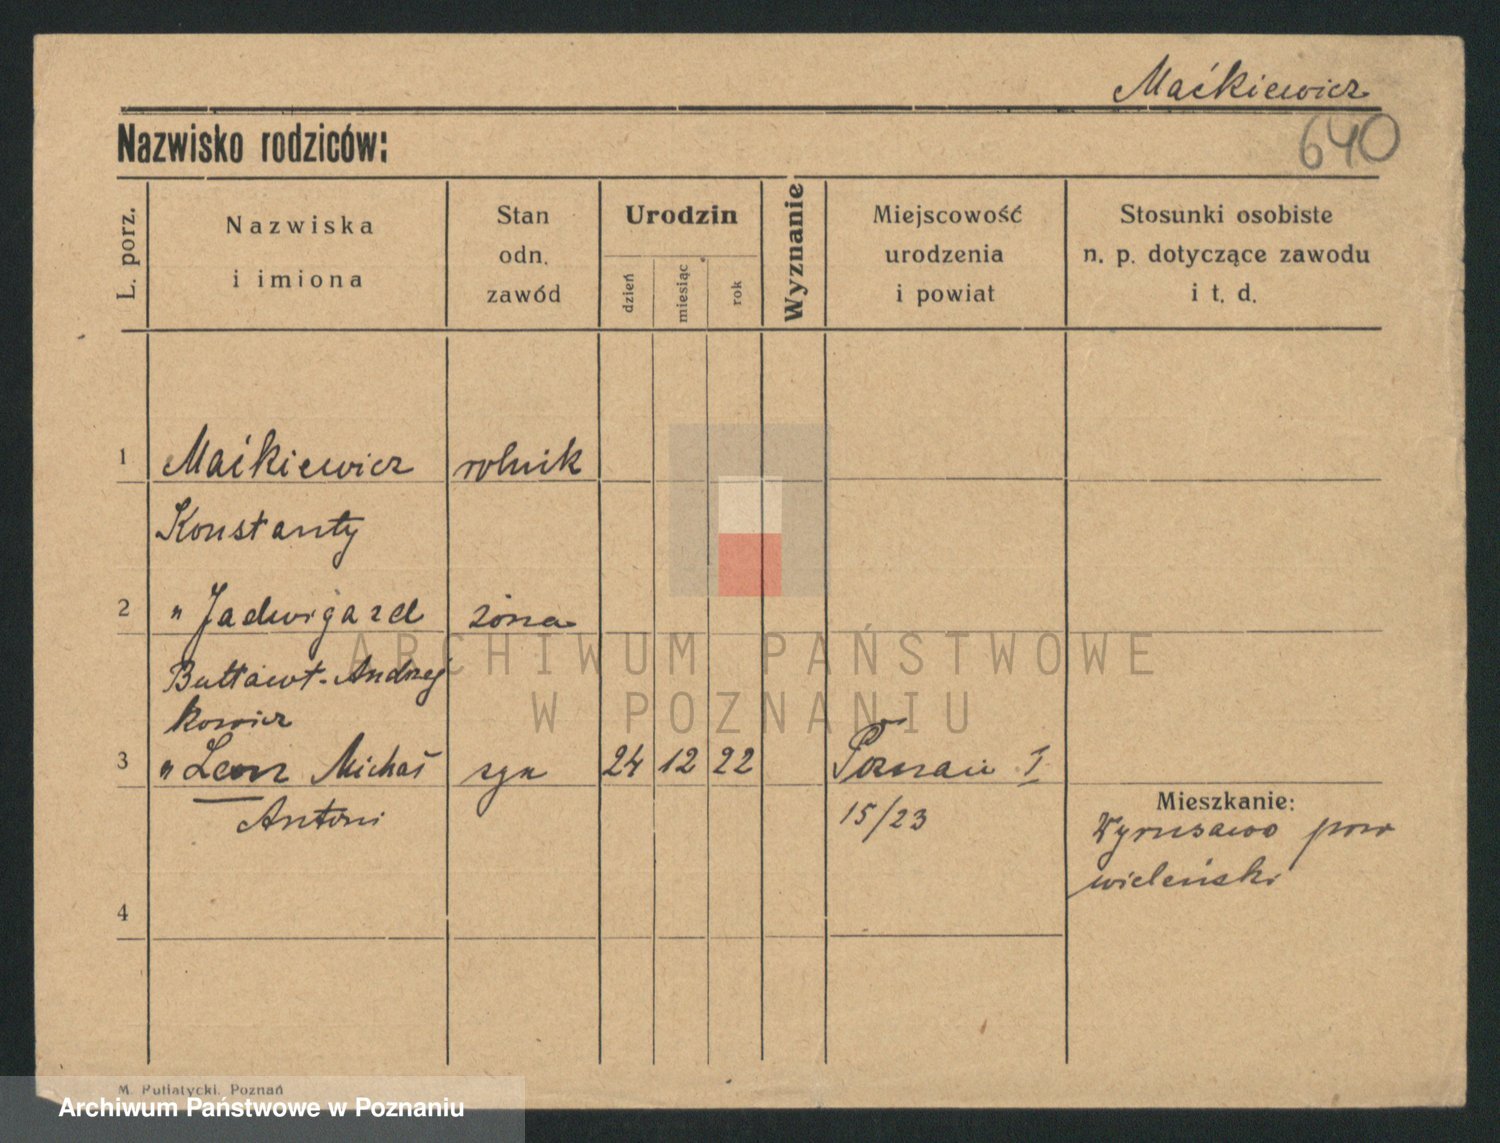 Maćkiewicz
Nazwisko rodziców:
640
L. porz.
Nazwiska
i imiona
Stan
odn.
zawód
Urodzin
dzień
miesiąc
rok
Wyznanie
Miejscowość
urodzenia
i powiat
Stosunki osobiste
n. p. dotyczące zawodu
i t. d.
1 Maćkiewicz rolnik
Konstanty
2 " Jadwiga zd żona
Andrzej
kowicz
3 " Leon Michał syn 24 12 22 Poznań I
Antoni
15/23
Mieszkanie:
pow
wileński
4
ARCHIWUM PAŃSTWOWE
W POZNANIU
M. Putiatycki, Poznań
Archiwum Państwowe w Poznaniu